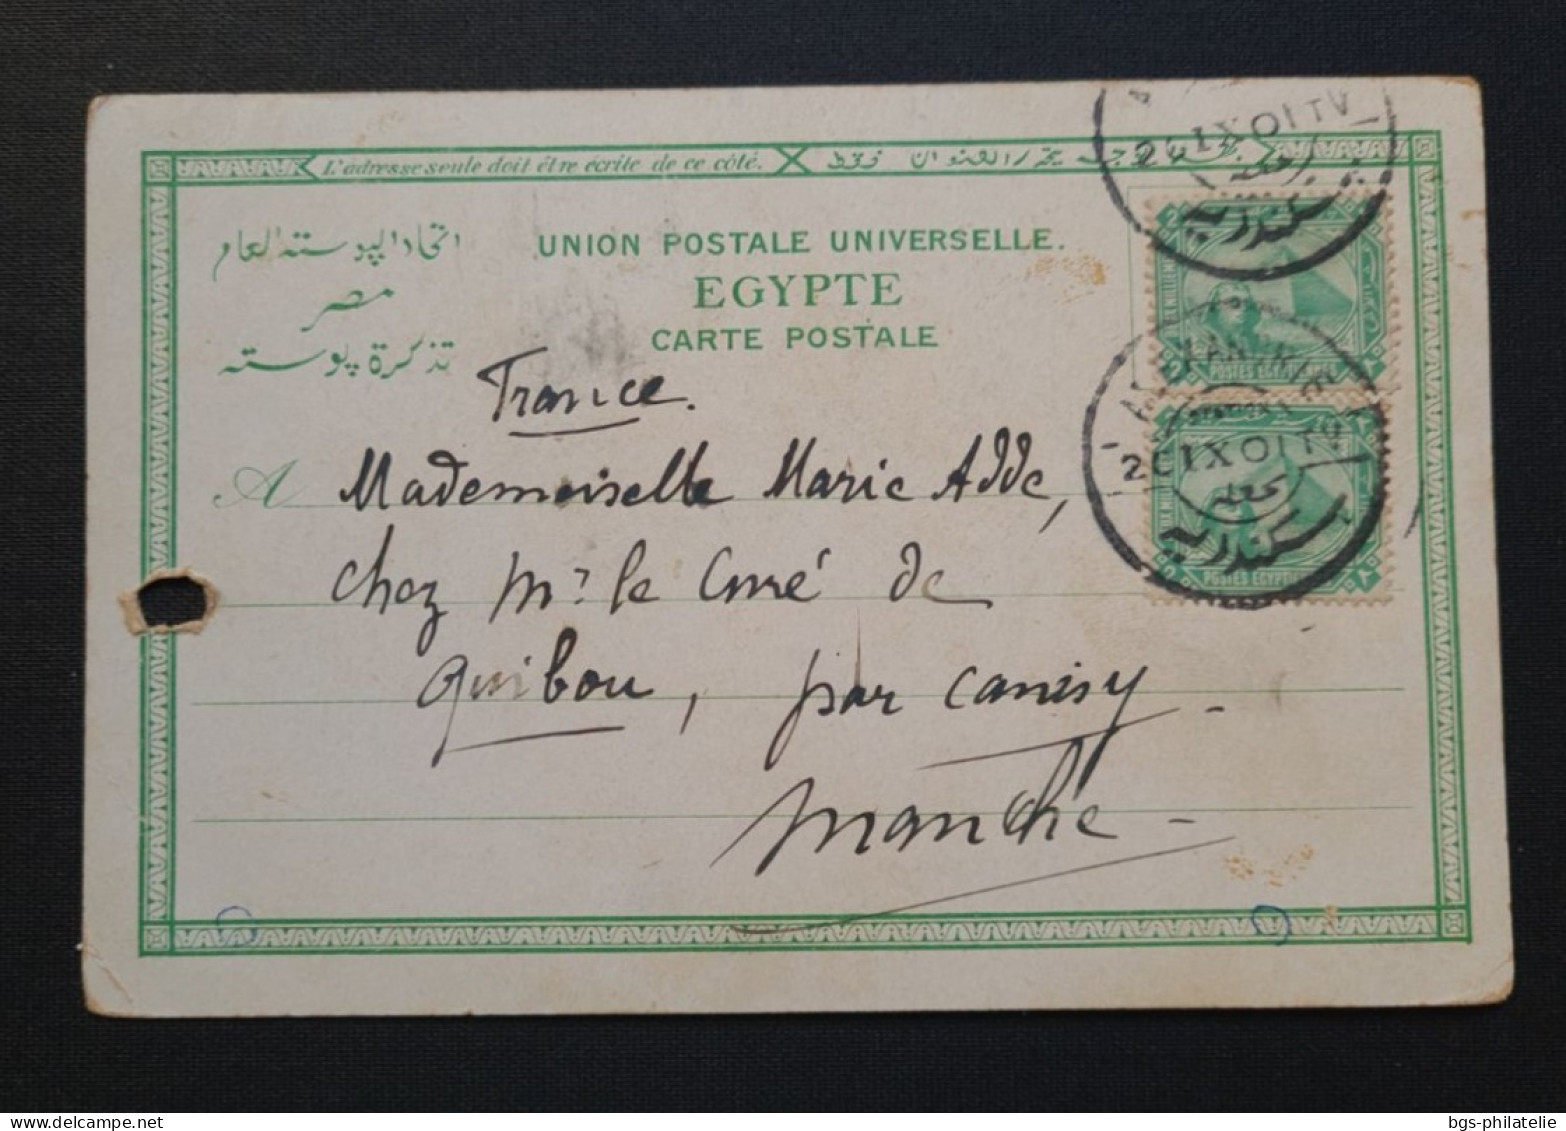 L'adresse seule doit être écrite de ce côté.
اتحاد البوسته العام
مصر
تذكرة بوسته
UNION POSTALE UNIVERSELLE.
EGYPTE
CARTE POSTALE
France.
A Mademoiselle Marie Adde,
chez Mr le Curé de
Quibou, par Canisy
Manche
IX 01 TV
سكندريه
POSTES EGYPTIENNES
IX 01 TV
محطة
سكندريه
POSTES EGYPTIENNES
bgs-philatelie